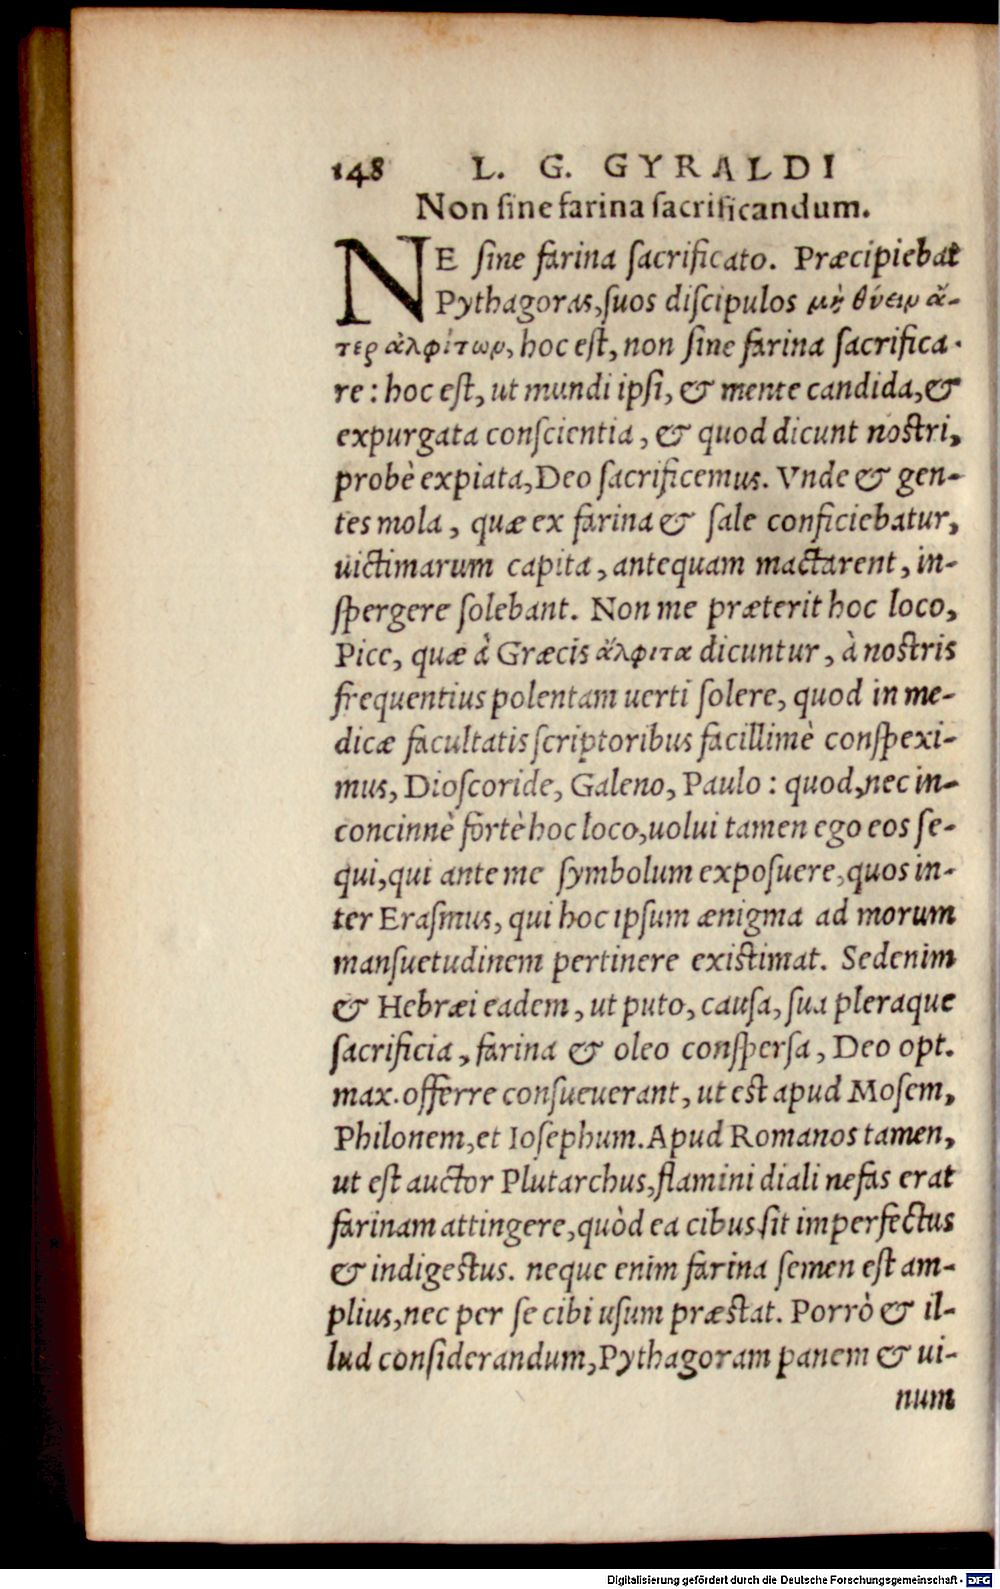 148 L. G. GYRALDI
Non sine farina sacrificandum.
NE sine farina sacrificato. Præcipiebat
Pythagoras, suos discipulos μὴ θύειν ἄ-
τερ ἀλφίτων, hoc est, non sine farina sacrifica-
re: hoc est, ut mundi ipsi, & mente candida, &
expurgata conscientia, & quod dicunt nostri,
probè expiata, Deo sacrificemus. Vnde & gen-
tes mola, quæ ex farina & sale conficiebatur,
uictimarum capita, antequam mactarent, in-
spergere solebant. Non me præterit hoc loco,
Pice, quæ à Græcis ἄλφιτα dicuntur, à nostris
frequentius polentam uerti solere, quod in me-
dicæ facultatis scriptoribus facillimè conspexi-
mus, Dioscoride, Galeno, Paulo: quod, nec in-
concinnè fortè hoc loco, uolui tamen ego eos se-
qui, qui ante me symbolum exposuere, quos in-
ter Erasmus, qui hoc ipsum ænigma ad morum
mansuetudinem pertinere existimat. Sedenim
& Hebræi eadem, ut puto, causa, sua pleraque
sacrificia, farina & oleo conspersa, Deo opt.
max. offerre consueuerant, ut est apud Mosem,
Philonem, et Iosephum. Apud Romanos tamen,
ut est auctor Plutarchus, flamini diali nefas erat
farinam attingere, quòd ea cibus sit imperfectus
& indigestus. neque enim farina semen est am-
plius, nec per se cibi usum præstat. Porrò & il-
lud considerandum, Pythagoram panem & ui-
num
Digitalisierung gefördert durch die Deutsche Forschungsgemeinschaft - DFG